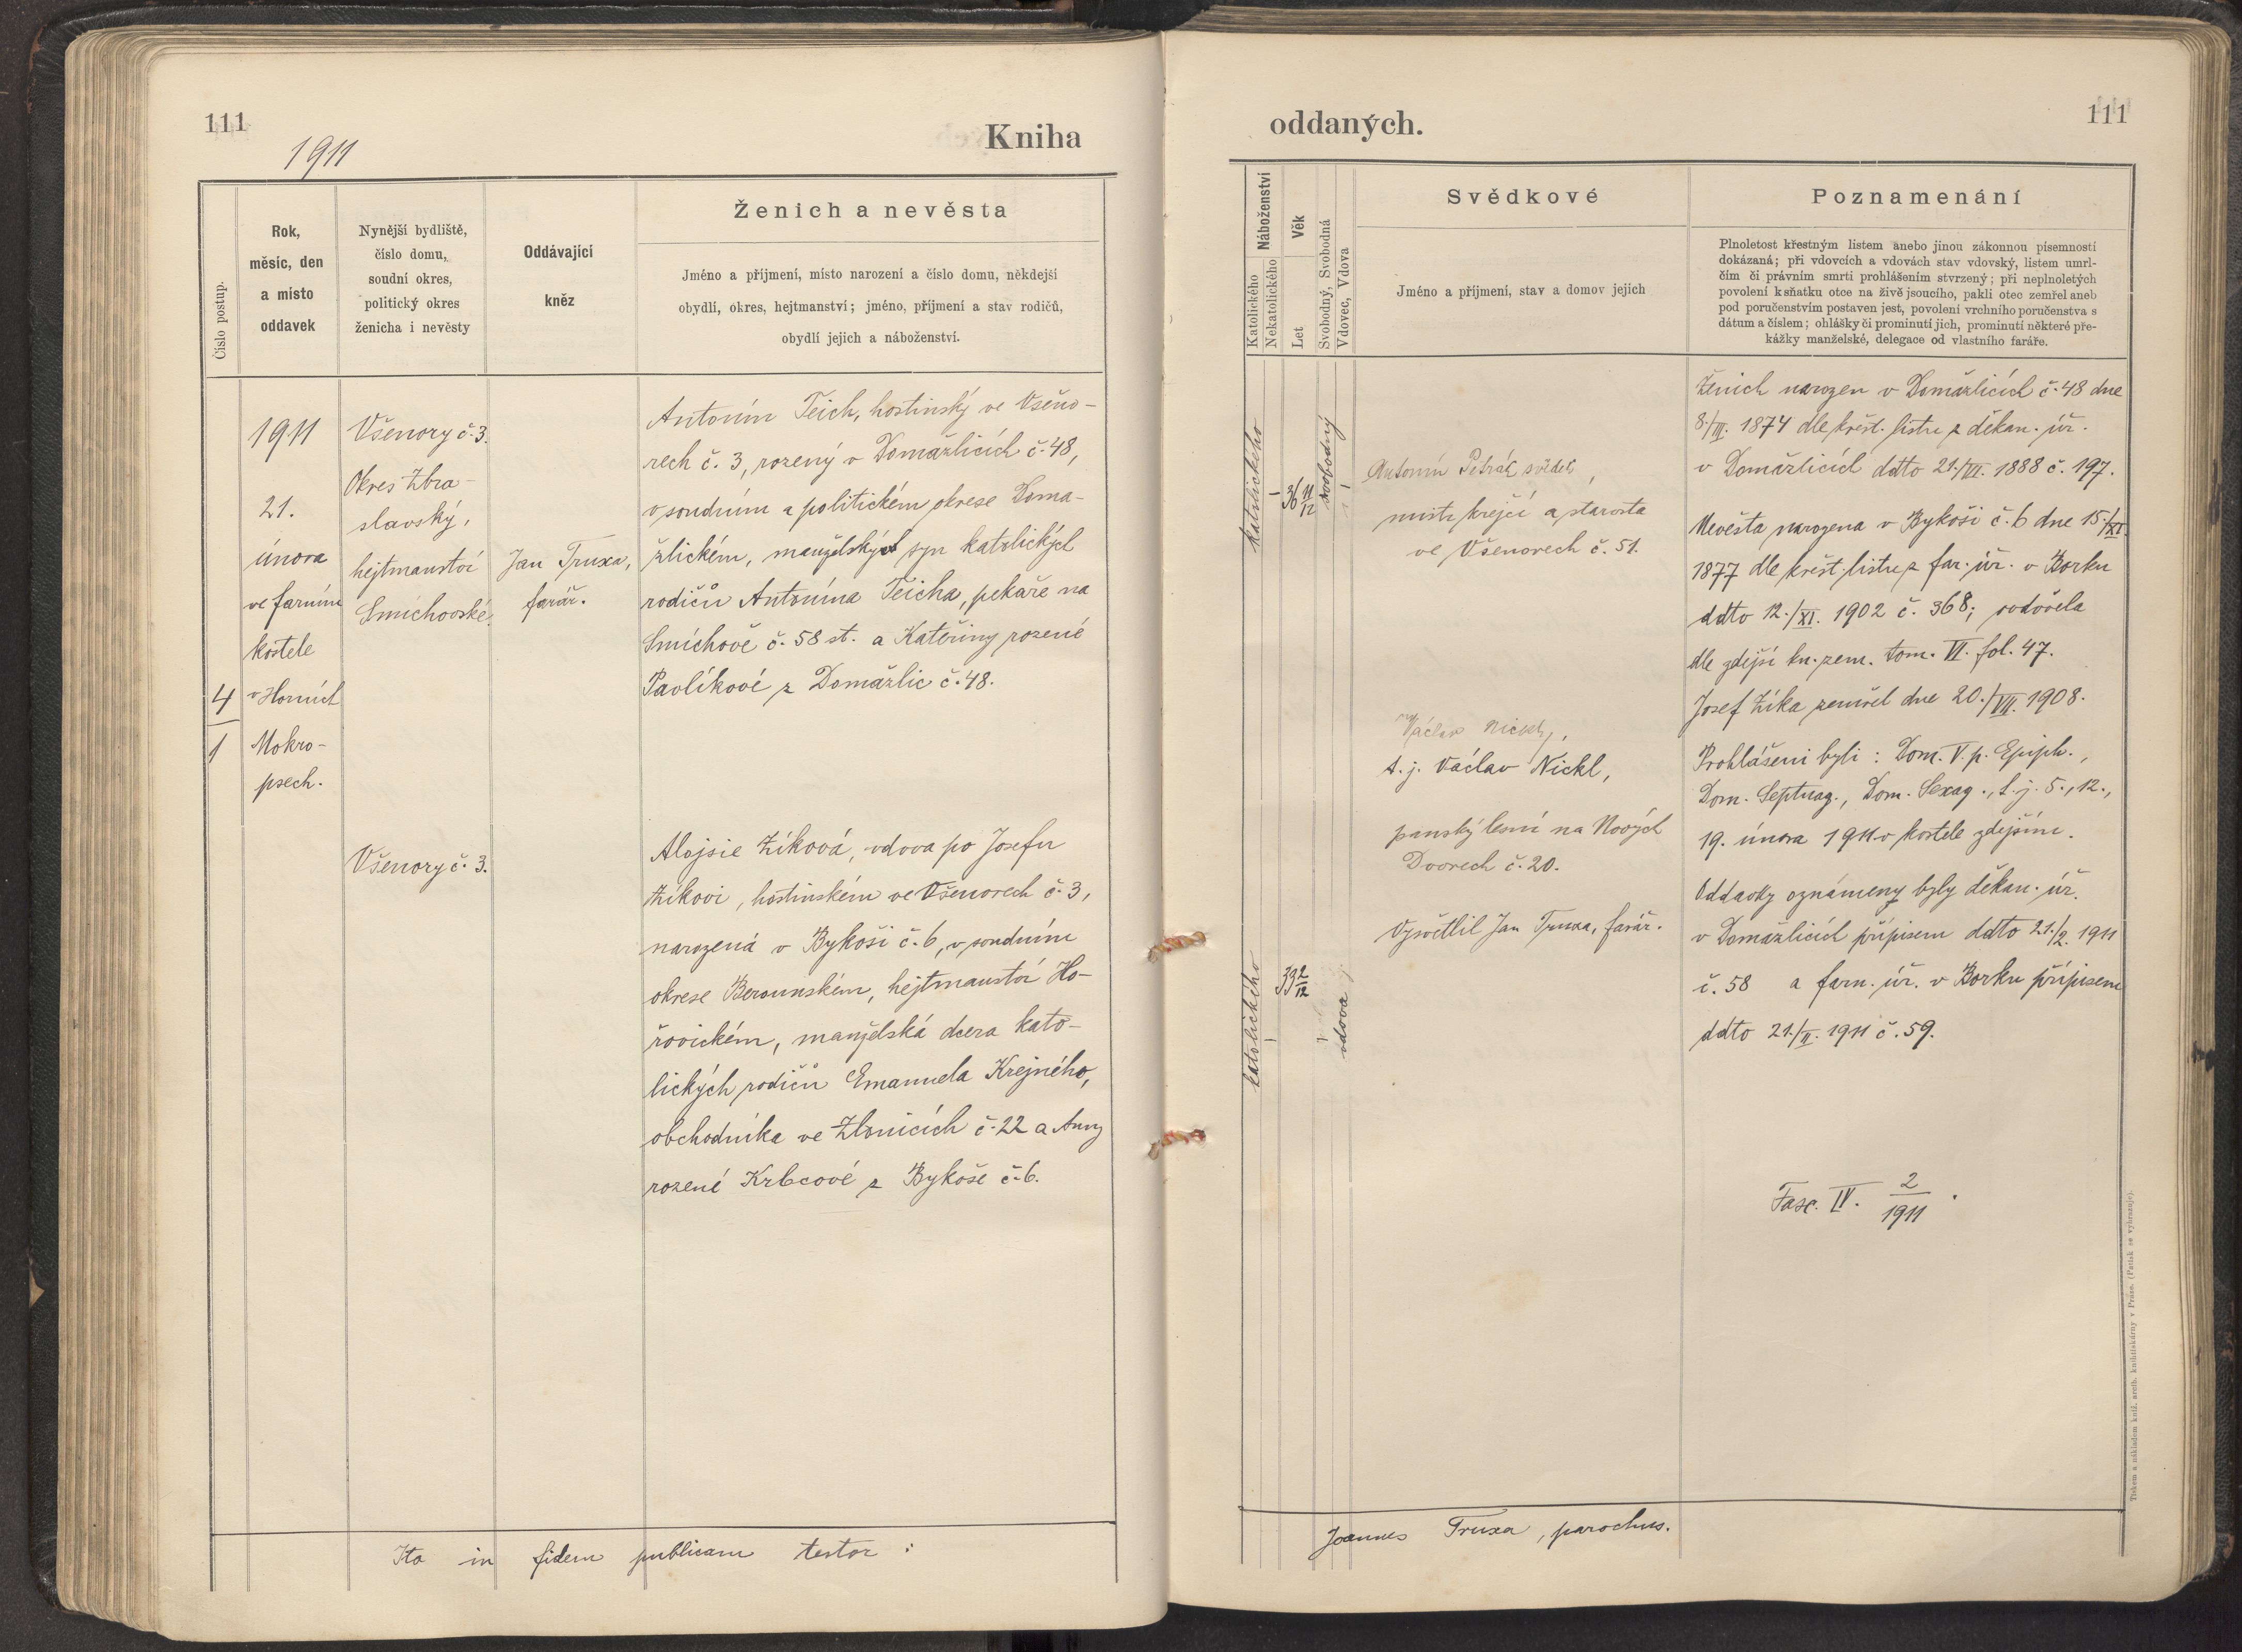 111
1911
Kniha
Číslo postup.
Rok,
měsíc, den
a místo
oddavek
Nynější bydliště,
číslo domu,
soudní okres,
politický okres
ženicha i nevěsty
Oddávající
kněz
Ženich a nevěsta
Jméno a příjmení, místo narození a číslo domu, někdejší
obydlí, okres, hejtmanství; jméno, příjmení a stav rodičů,
obydlí jejich a náboženství.
4
1
1911
21.
února
ve farním
kostele
v Horních
Mokro-
psech.
Všenory č. 3.
Okres Zbra-
slavský,
hejtmanství
Smíchovské.
Jan Truxa,
farář.
Antonín Teich, hostinský ve Všeno-
rech č. 3, rozený v Domažlicích č. 48,
v soudním a politickém okrese Doma-
žlickém, manželský syn katolických
rodičů Antonína Teicha, pekaře na
Smíchově č. 58 st. a Kateřiny rozené
Pavlíkové z Domažlic č. 48.
Všenory č. 3.
Alojsie Zíková, vdova po Josefu
Zíkovi, hostinském ve Všenorech č. 3,
narozená v Bykoši č. 6, v soudním
okrese Berounském, hejtmanství Ho-
řovickém, manželská dcera kato-
lických rodičů Emanuela Krejného,
obchodníka ve Zlonicích č. 22 a Anny
rozené Krbcové z Bykoše č. 6.
Ita in fidem publicam testor :
oddaných.
111
Náboženství
Katolického
Nekatolického
Věk
Let
Svobodný, Svobodná
Vdovec, Vdova
Svědkové
Jméno a příjmení, stav a domov jejich
Poznamenání
Plnoletost křestným listem anebo jinou zákonnou písemností
dokázaná; při vdovcích a vdovách stav vdovský, listem umrl-
čím či právním smrti prohlášením stvrzený; při neplnoletých
povolení k sňatku otce na živě jsoucího, pakli otec zemřel aneb
pod poručenstvím postaven jest, povolení vrchního poručenstva s
dátum a číslem; ohlášky či prominutí jich, prominutí některé pře-
kážky manželské, delegace od vlastního faráře.
katolického
36 11/12
svobodný
Antonín Petrák svědek,
mistr krejčí a starosta
ve Všenorech č. 51.
Václav Nickl,
t. j. Václav Nickl,
panský lesní na Nových
Dvorech č. 20.
Vysvětlil Jan Truxa, farář.
katolického
33 2/12
vdova
Ženich narozen v Domažlicích č. 48 dne
8./III. 1874 dle křest. listu z děkan. úř.
v Domažlicích ddto 21./III. 1888 č. 197.
Nevěsta narozena v Bykoši č. 6 dne 15./XI.
1877 dle křest. listu z far. úř. v Borku
ddto 12./XI. 1902 č. 368; ovdověla
dle zdejší kn. zem. tom. VI. fol. 47.
Josef Zíka zemřel dne 20./VII. 1908.
Prohlášeni byli : Dom. V. p. Epiph.,
Dom. Septuag., Dom. Sexag., t. j. 5., 12.,
19. února 1911 v kostele zdejším.
Oddavky oznámeny byly děkan. úř.
v Domažlicích přípisem ddto 21./2. 1911
č. 58 a farn. úř. v Borku přípisem
ddto 21./II. 1911 č. 59.
Fasc. IV. 2/1911.
Joannes Truxa, parochus.
Tiskem a nákladem kníž. arcib. knihtiskárny v Praze. (Patisk se vyhrazuje).